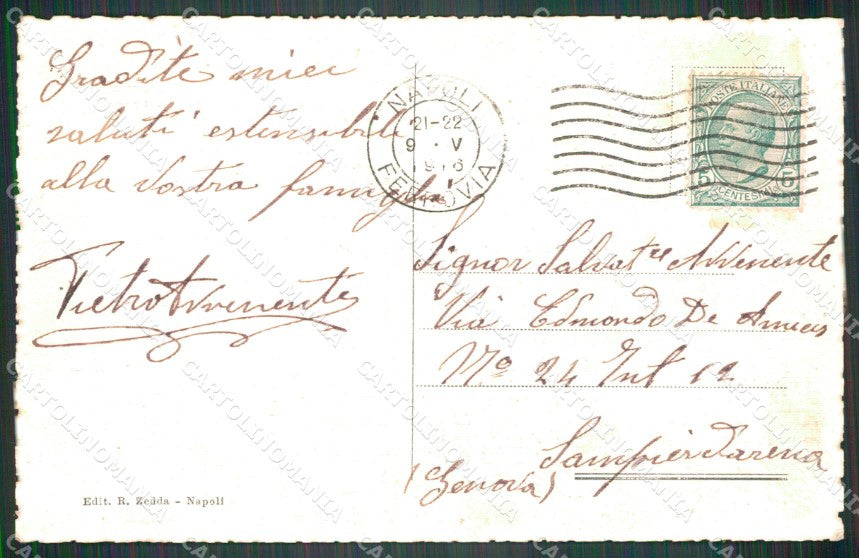 Gradite miei
saluti estensibili
alla vostra famiglia
Pietro Avvenente
NAPOLI
21-22
9 . V
1916
FERROVIA
POSTE ITALIANE
5 CENTESIMI 5
Signor Salvatre Avvenente
Via Edmondo De Amicis
No 24 Int 12
Sampierdarena
(Genova)
Edit. R. Zedda - Napoli
CARTOLINOMANIA